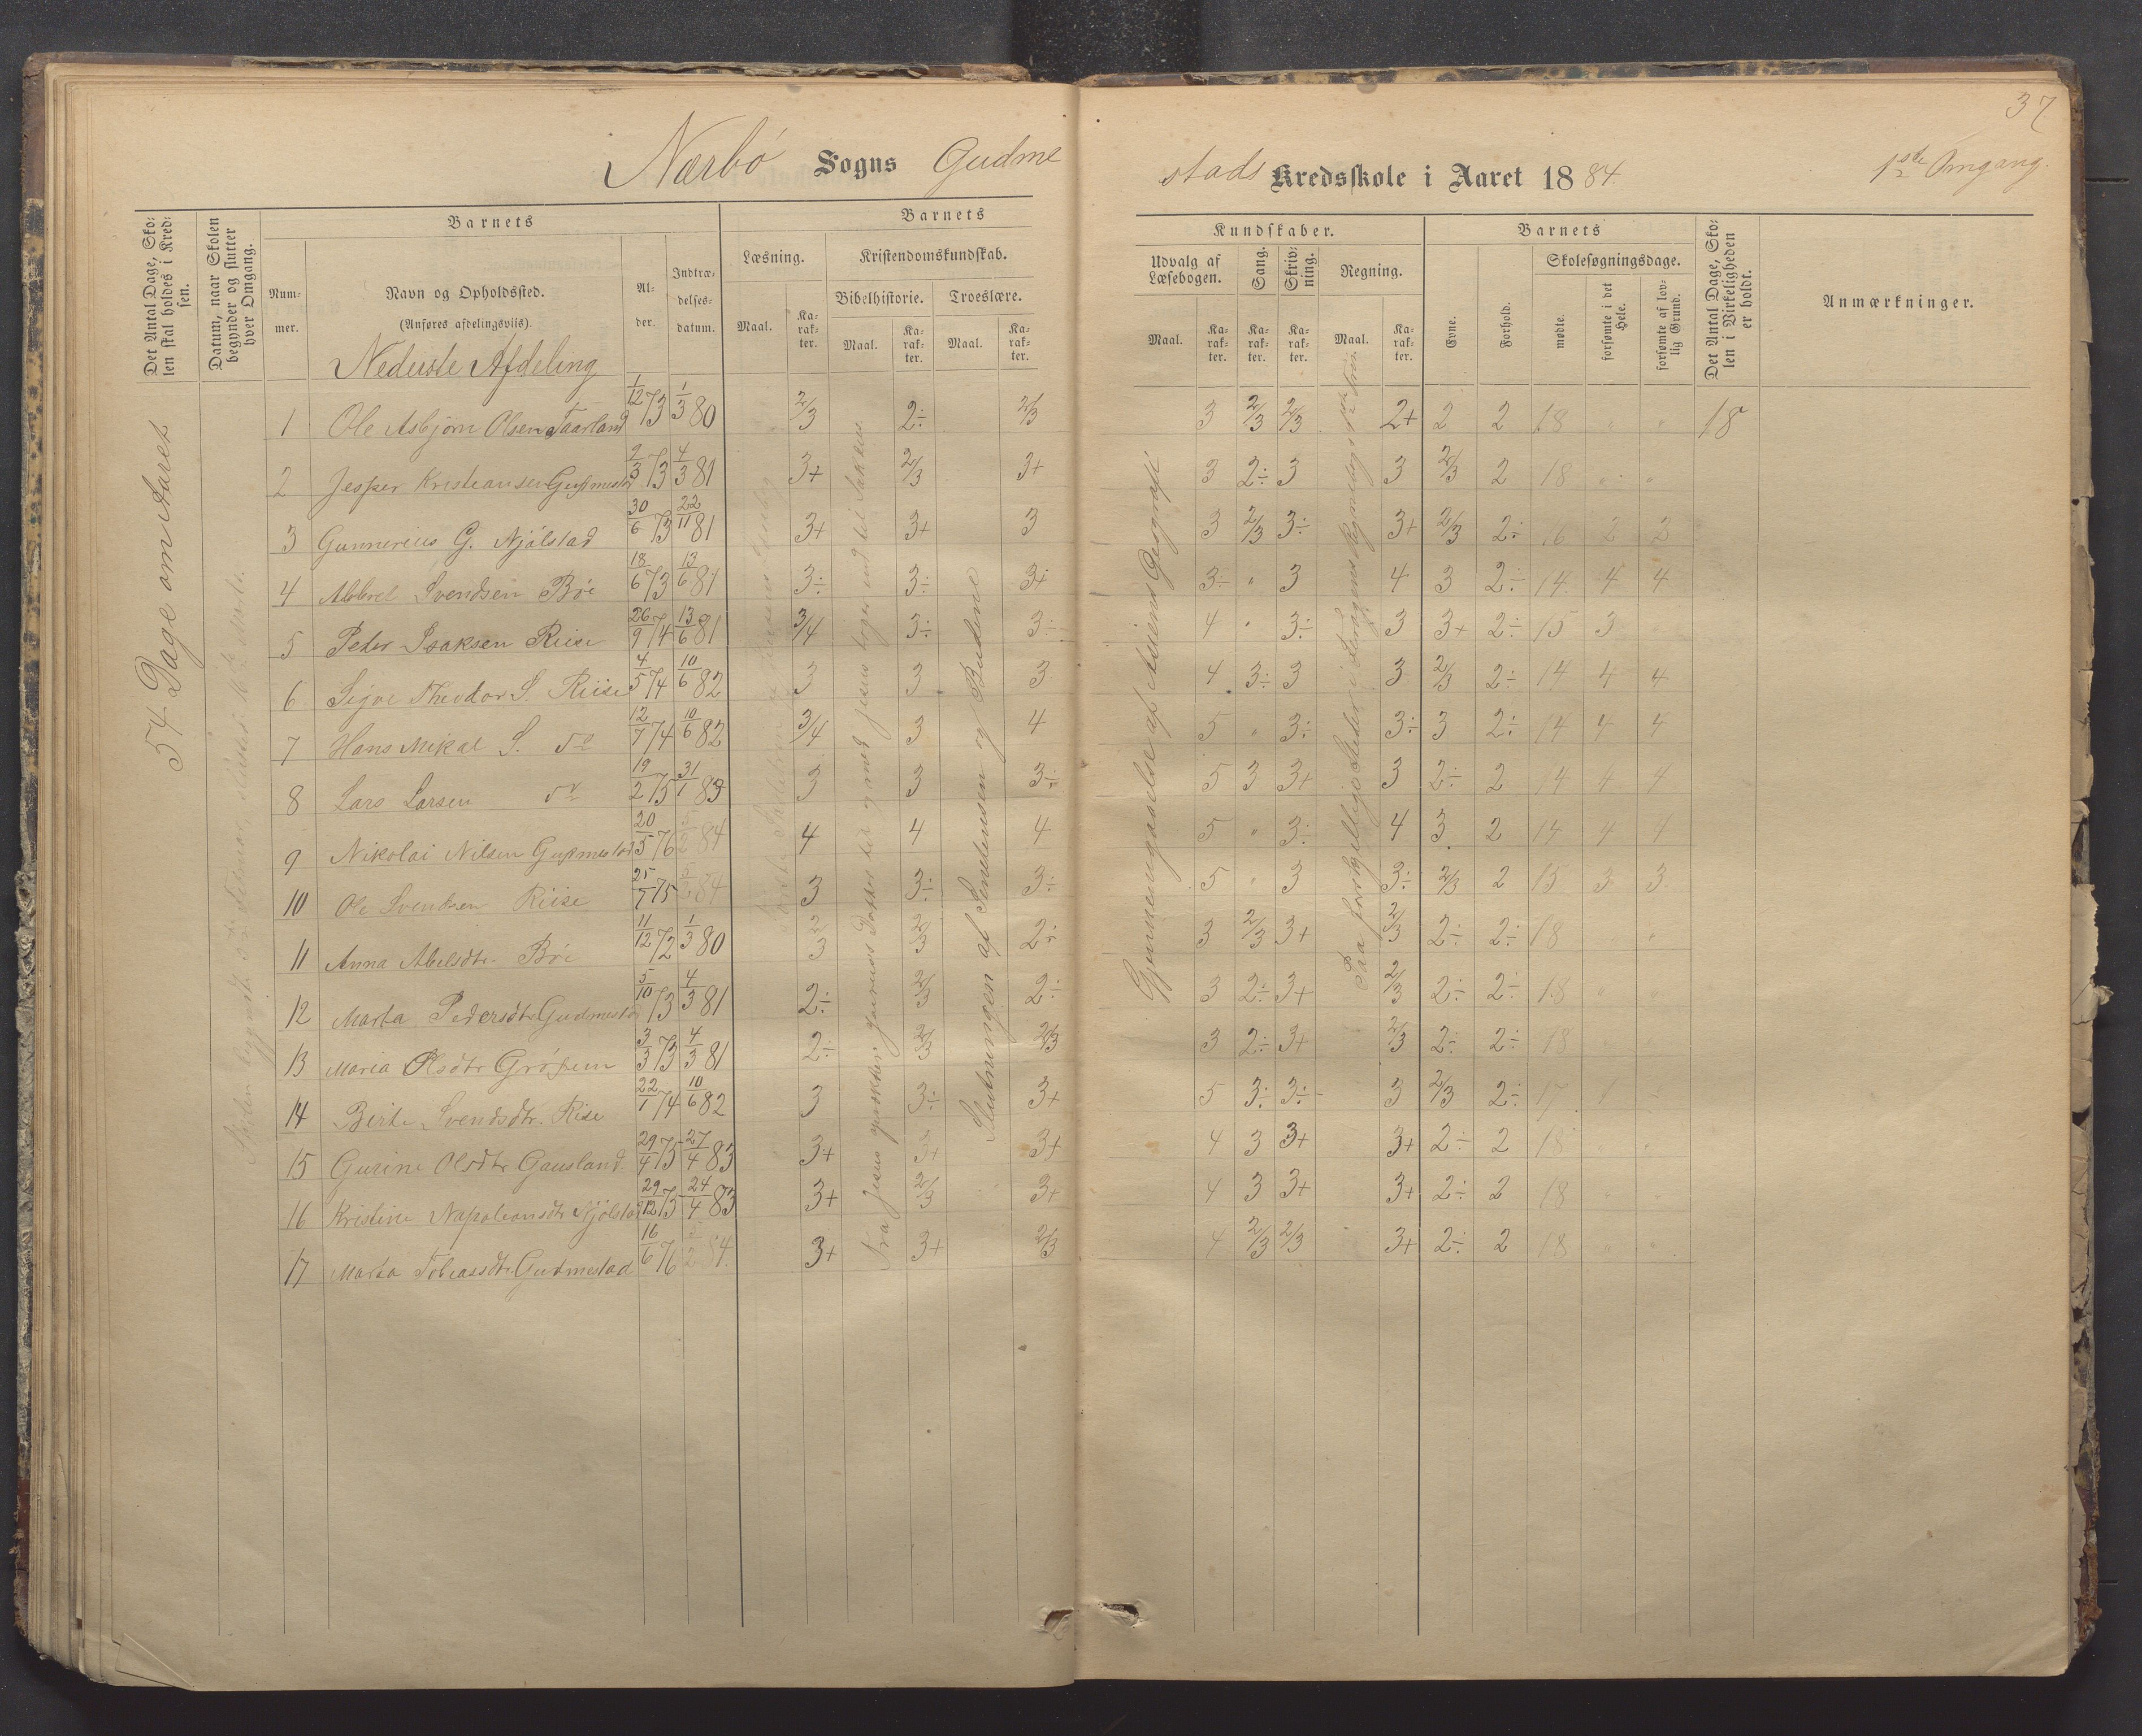 37
Nærbø Sogns Gudme
stads Kredsskole i Aaret 1884.
1ste Omgang.
Det Antal Dage, Sko-
len skal holdes i Kred-
sen.
Datum, naar Skolen
begynder og slutter
hver Omgang.
Barnets
Num-
mer.
Navn og Opholdssted.
(Anføres afdelingsviis).
Al-
der.
Indtræ-
delses-
datum.
Barnets
Læsning.
Maal.
Ka-
rak-
ter.
Kristendomskundskab.
Bibelhistorie.
Maal.
Ka-
rak-
ter.
Troeslære.
Maal.
Ka-
rak-
ter.
Kundskaber.
Udvalg af
Læsebogen.
Maal.
Ka-
rak-
ter.
Sang.
Ka-
rak-
ter.
Skriv-
ning.
Ka-
rak-
ter.
Regning.
Maal.
Ka-
rak-
ter.
Barnets
Evne.
Forhold.
Skolesøgningsdage.
mødte.
forsømte i det
Hele.
forsømte af lov-
lig Grund.
Det Antal Dage, Sko-
len i Virkeligheden
er holdt.
Anmærkninger.
Nederste Afdeling
54 Dage om Aaret
Slutningen af Sendelsen og Budene
Gjennemgaaelse af Asiens Geografi
1 Ole Asbjørn Olsen Taarland 1/12 73 1/3 80 2/3 2÷ 2/3 3 2/3 2/3 2+ 2 2 18 " " 18
2 Jesper Kristiansen Gudmestad 2/3 73 4/3 81 3+ 2/3 3+ 3 2÷ 3 3 2/3 2 18 " "
3 Gunnerius G. Njålstad 30/6 73 22/11 81 3+ 3+ 3 3 2/3 3÷ 3+ 2/3 2÷ 16 2 2
4 Svendsen Bø 18/6 73 13/6 81 3÷ 3÷ 3÷ 3÷ " 3 4 3 2÷ 14 4 4
5 Peter Isaksen Riise 26/9 74 13/6 81 3/4 3÷ 3÷ 4 " 3÷ 3 3+ 2÷ 15 3
6 Sigve Theodor S. Riise 4/5 74 10/6 82 3 3 3 4 3÷ 3 3 2/3 2÷ 14 4 4
7 Hans Mikal S. do 12/7 74 10/6 82 3/4 3 4 5 " 3÷ 3÷ 3 2÷ 14 4 4
8 Lars Larsen do 19/2 75 31/1 83 3 3 3÷ 5 3 3+ 3 2÷ 2 14 4 4
9 Nikolai Nilsen Gudmestad 20/5 76 5/2 84 4 4 4 5 " 3÷ 4 3 2 14 4 4
10 Ole Svendsen Riise 25/7 75 5/2 84 3 3÷ 3÷ 5 " 3 3÷ 2/3 2 15 3 3
11 Anna Abelsdtr. Bø 11/12 72 1/3 80 2/3 2/3 2÷ 3 2/3 3+ 2/3 2÷ 2÷ 18 "
12 Marta Pedersdtr Gudmestad 5/10 73 4/3 81 2÷ 2/3 2÷ 3 2÷ 3+ 2/3 2÷ 2÷ 18 " "
13 Maria Olsdtr 3/3 73 4/3 81 2÷ 2/3 2/3 3 2÷ 3+ 2/3 2÷ 2÷ 18
14 Berte Svendsdtr. Rise 22/1 74 10/6 82 3 3÷ 3+ 5 3÷ 3÷ 3 2/3 2÷ 17 1
15 Gurine Olsdtr Gausland 29/4 75 27/4 83 3+ 3+ 3+ 4 3 3+ 3+ 2÷ 2 18 " "
16 Kristine Napoleonsdtr Njölstad 29/12 73 24/4 83 3+ 2/3 3+ 4 3 3+ 3+ 2÷ 2 18 " "
17 Marta Tobiassdtr Gudmestad 16/6 76 5/2 84. 3+ 3+ 2/3 4 2/3 2/3 3+ 2÷ 2 18 " "